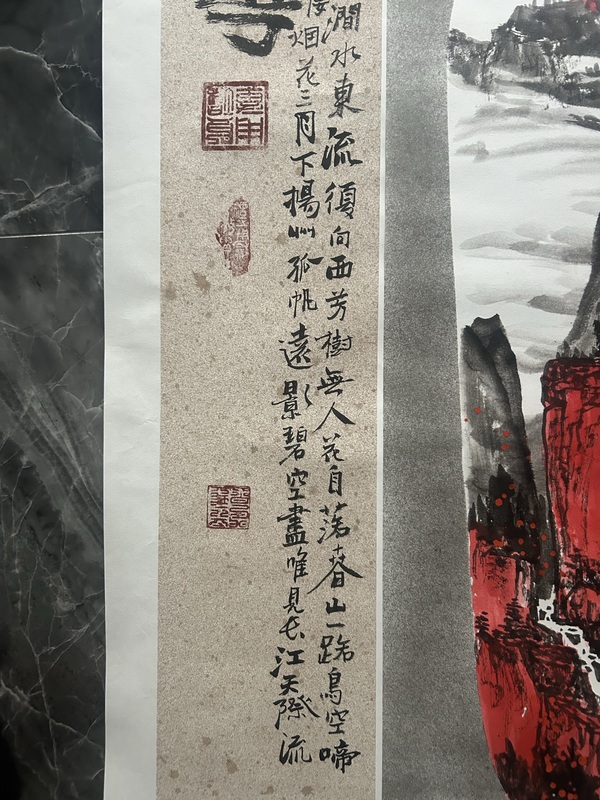 澗水東流復向西芳樹無人花自落春山一路鳥空啼
烟花三月下揚州孤帆遠影碧空盡唯見长江天際流